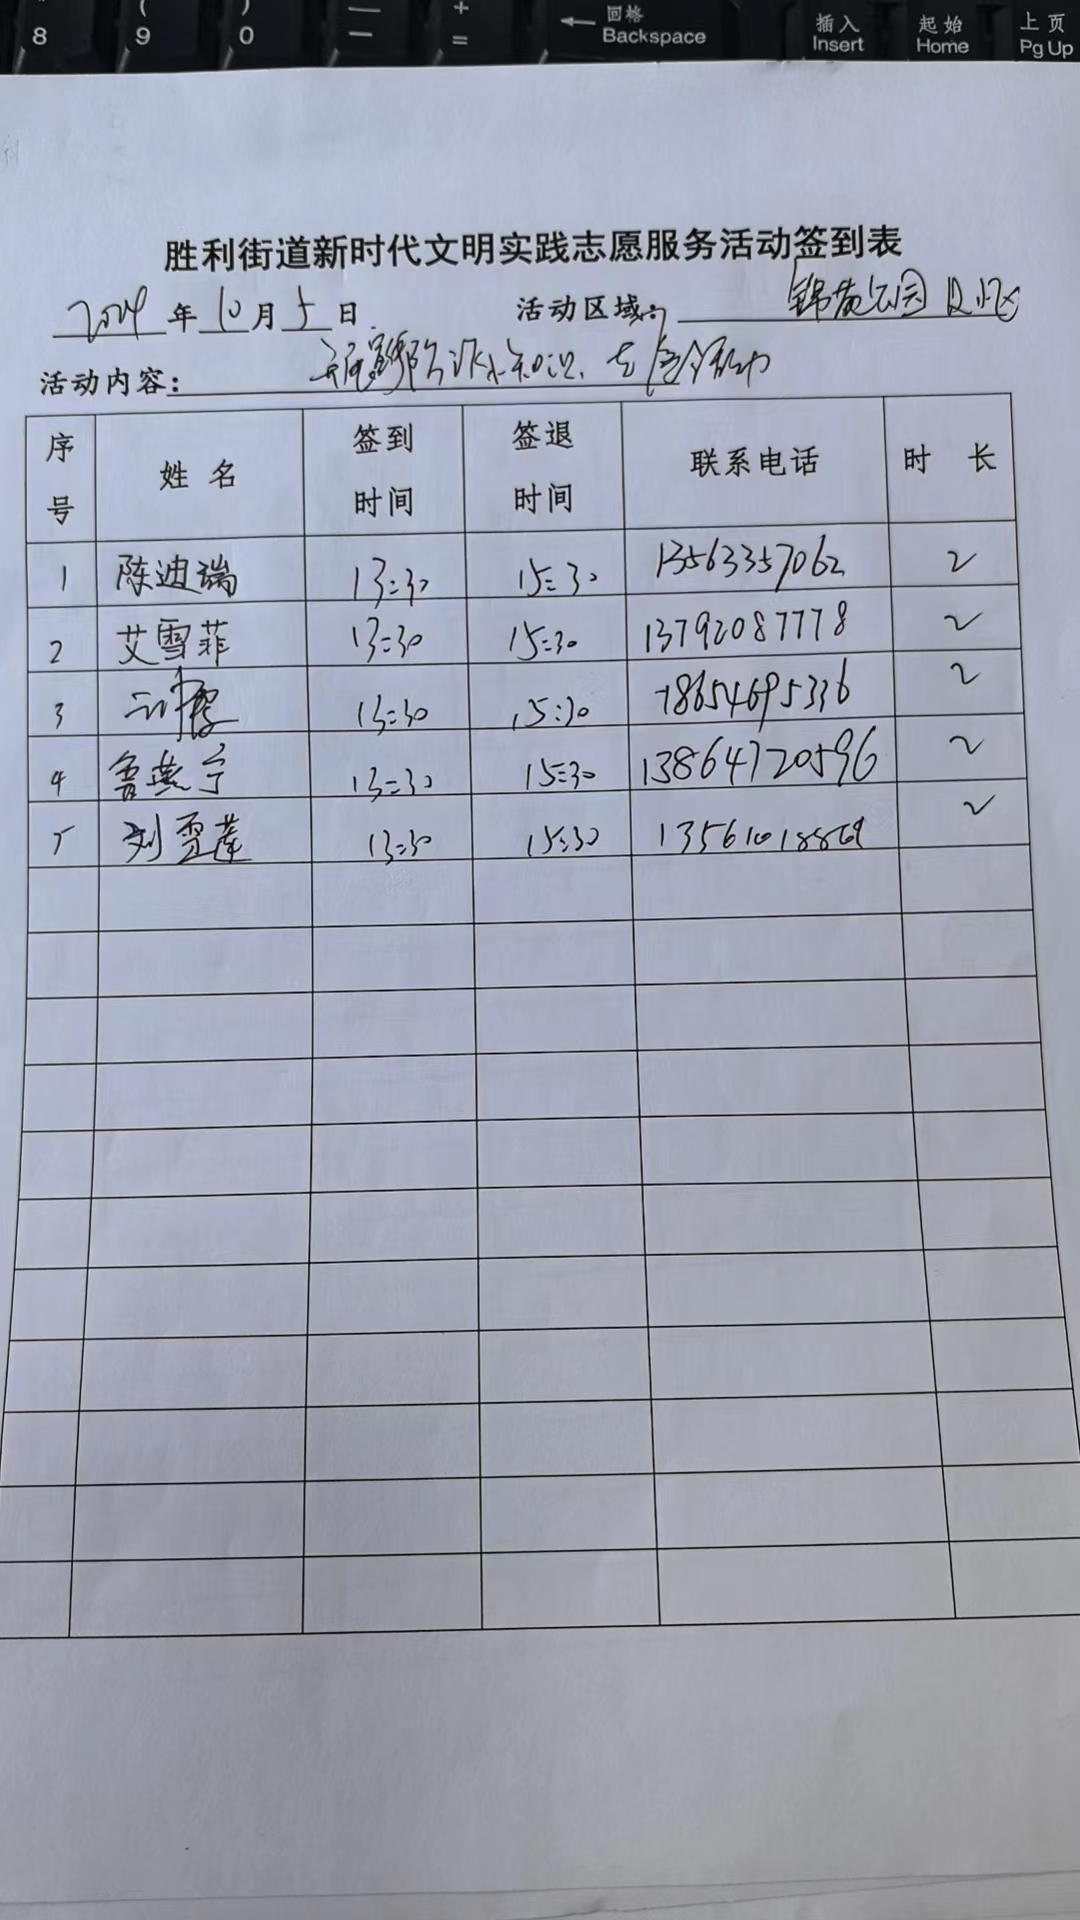 8 ( 9 ) 0 — — + = ← 回格 Backspace 插入 Insert 起始 Home 上页 Pg Up
胜利街道新时代文明实践志愿服务活动签到表
2024年10月5日 活动区域: 公园
活动内容: 知识
序号 姓名 签到时间 签退时间 联系电话 时长
1 陈迪瑞 13:30 15:30 13563357062 2
2 艾雪菲 13:30 15:30 13792087778 2
3 13:30 15:30 18654695336 2
4 鲁燕宁 13:30 15:30 13864720596 2
5 刘雪莲 13:30 15:30 2